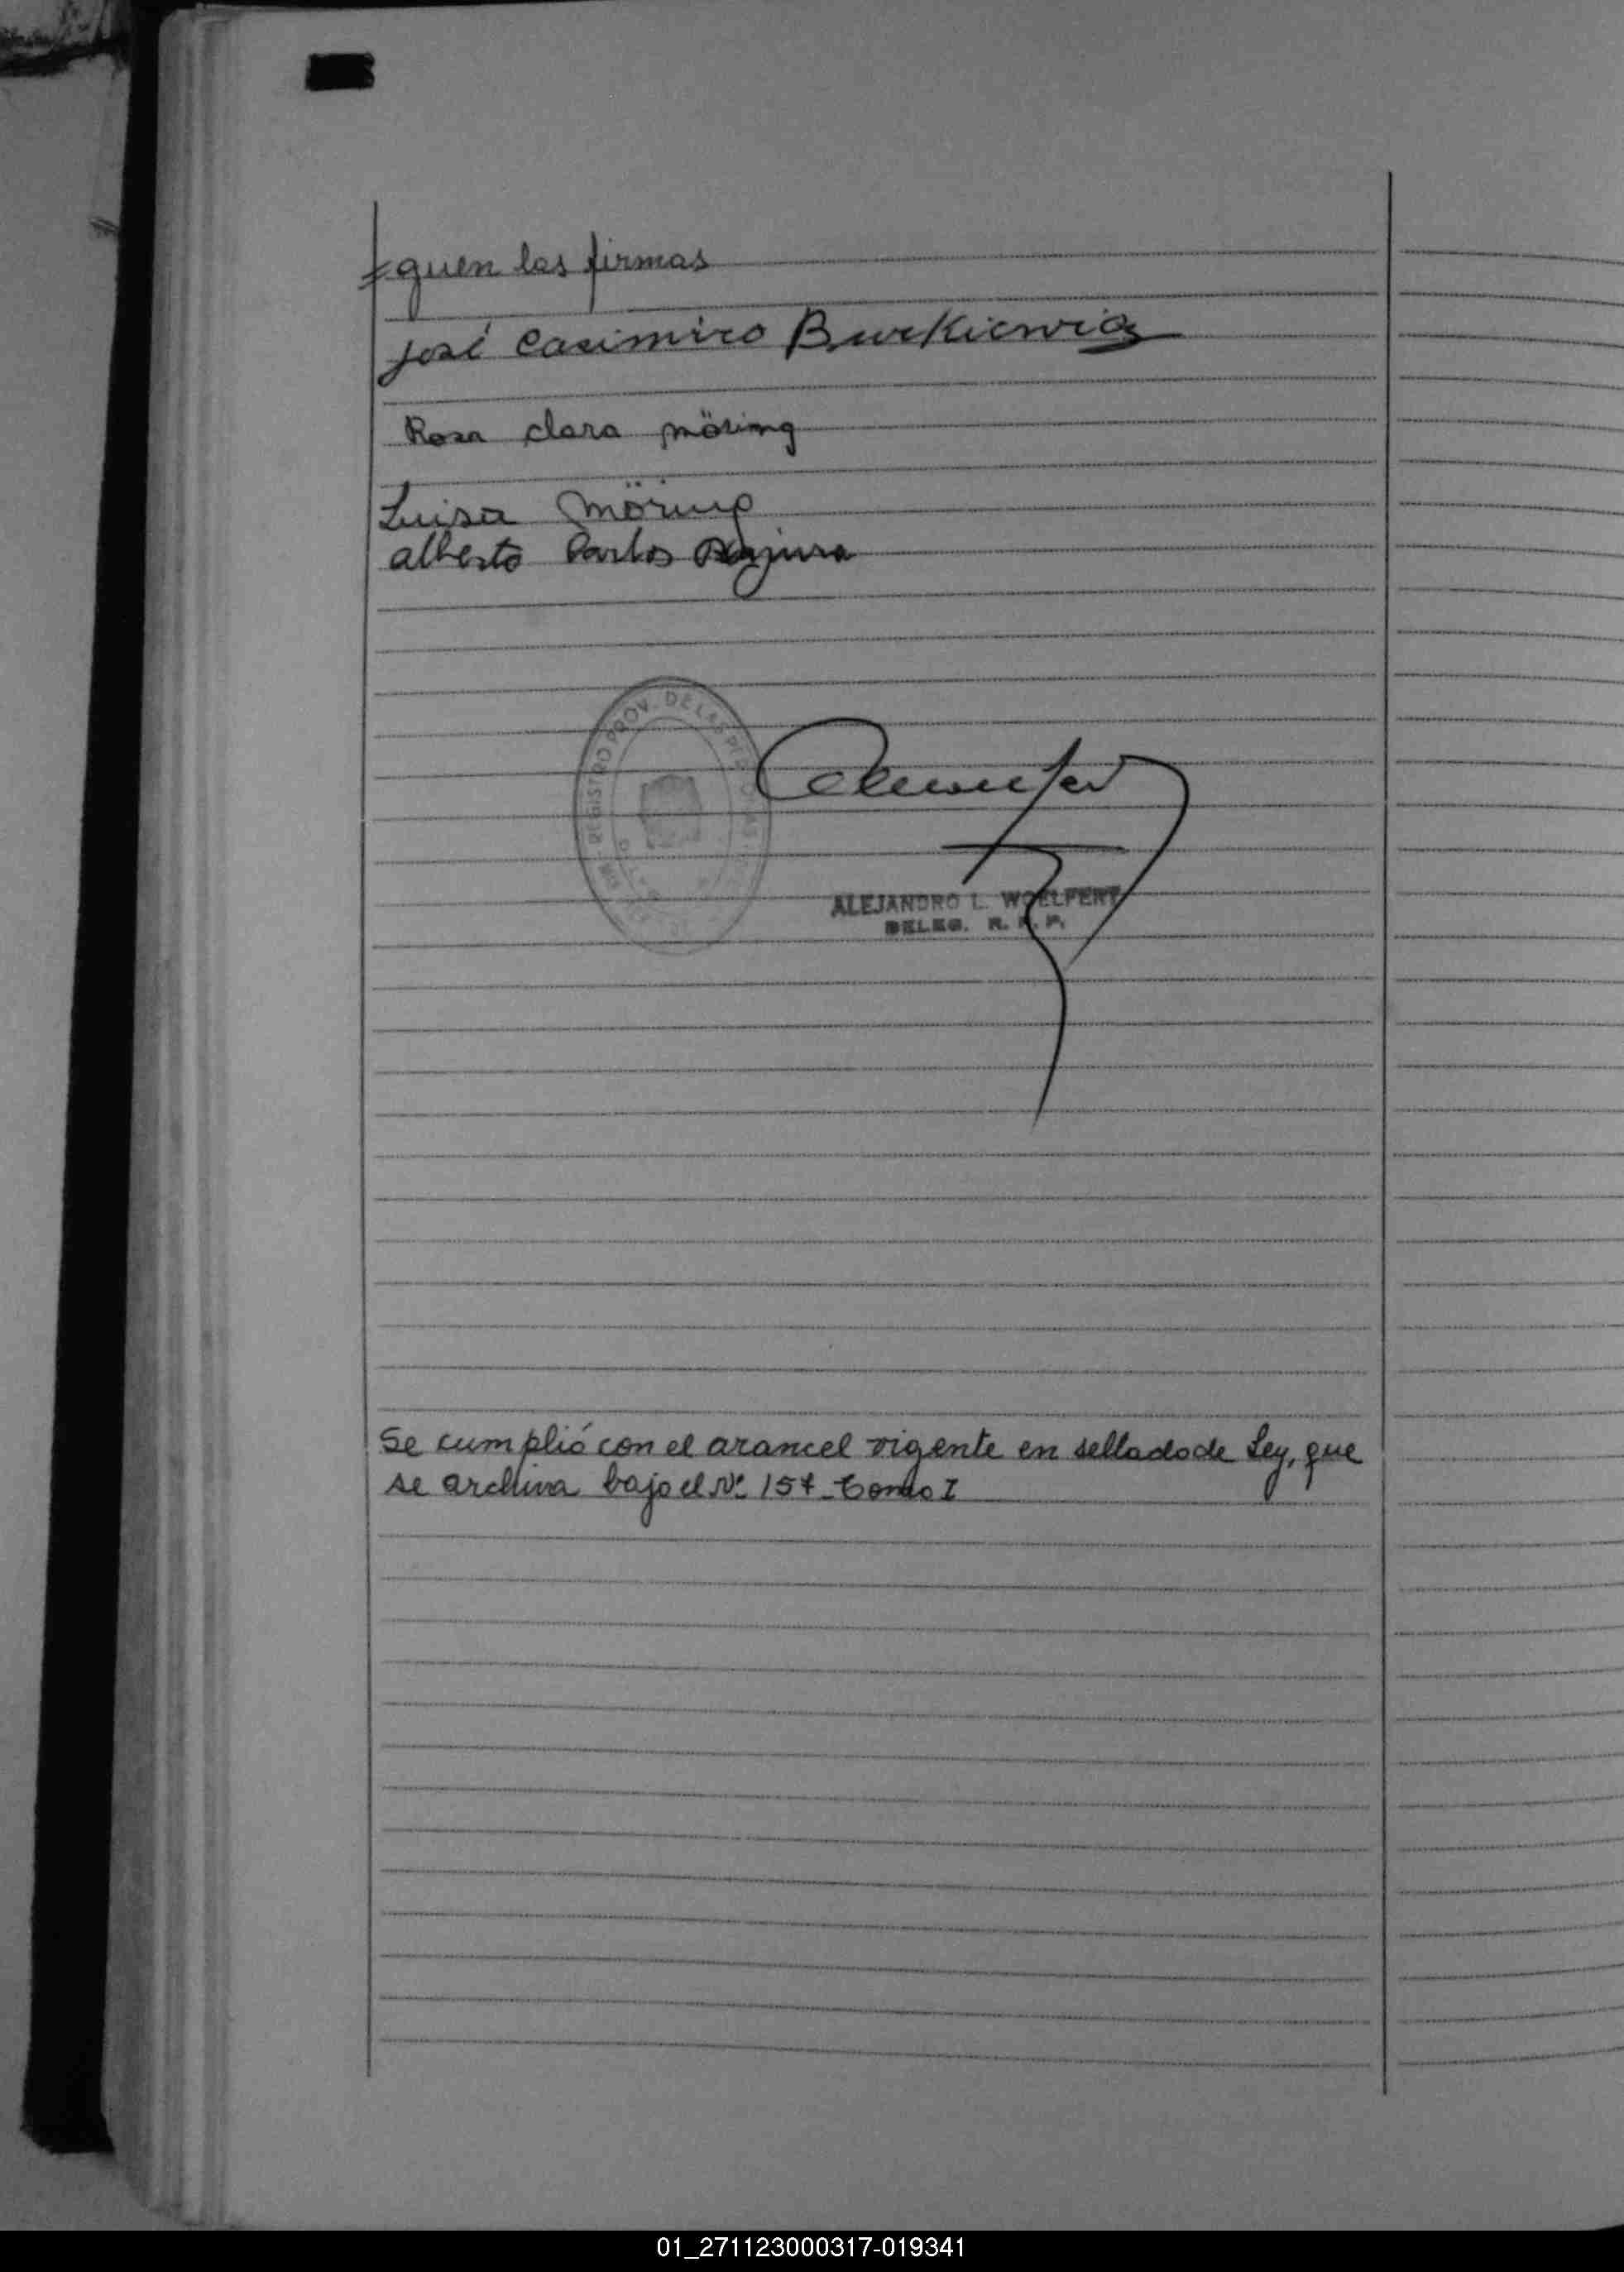 =guen las firmas
José Casimiro Burkiewicz
Rosa clara möring
Luisa Möring
alberto Carlos
REGISTRO PROV. DE LAS PERSONAS
ALEJANDRO L. WOELFERT
DELEG. R. P. P.
Se cumplió con el arancel vigente en sellado de Ley, que
se archiva bajo el Nº 157 - Tomo I
01_271123000317-019341